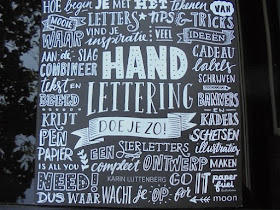 HOE begin JE MET HET Tekenen VAN
MOOIE LETTERS * TIPS & TRICKS
WAAR VIND je inspiratie: VEEL IDEEËN
AAN de SLAG HAND CADEAU labels
COMBINEER SCHRIJVEN
tekst en BEELD LETTERING BANNERS EN
KRIJT DOE JE ZO! KADERS
PEN SCHETSEN
PAPER EEN SIERLETTERS illustraties
IS ALL YOU compleet ONTWERP MAKEN
NEED! KARIN LUTTENBERG GO 4 IT paper fuel
DUS WAAR WACHT je OP. FOR moon